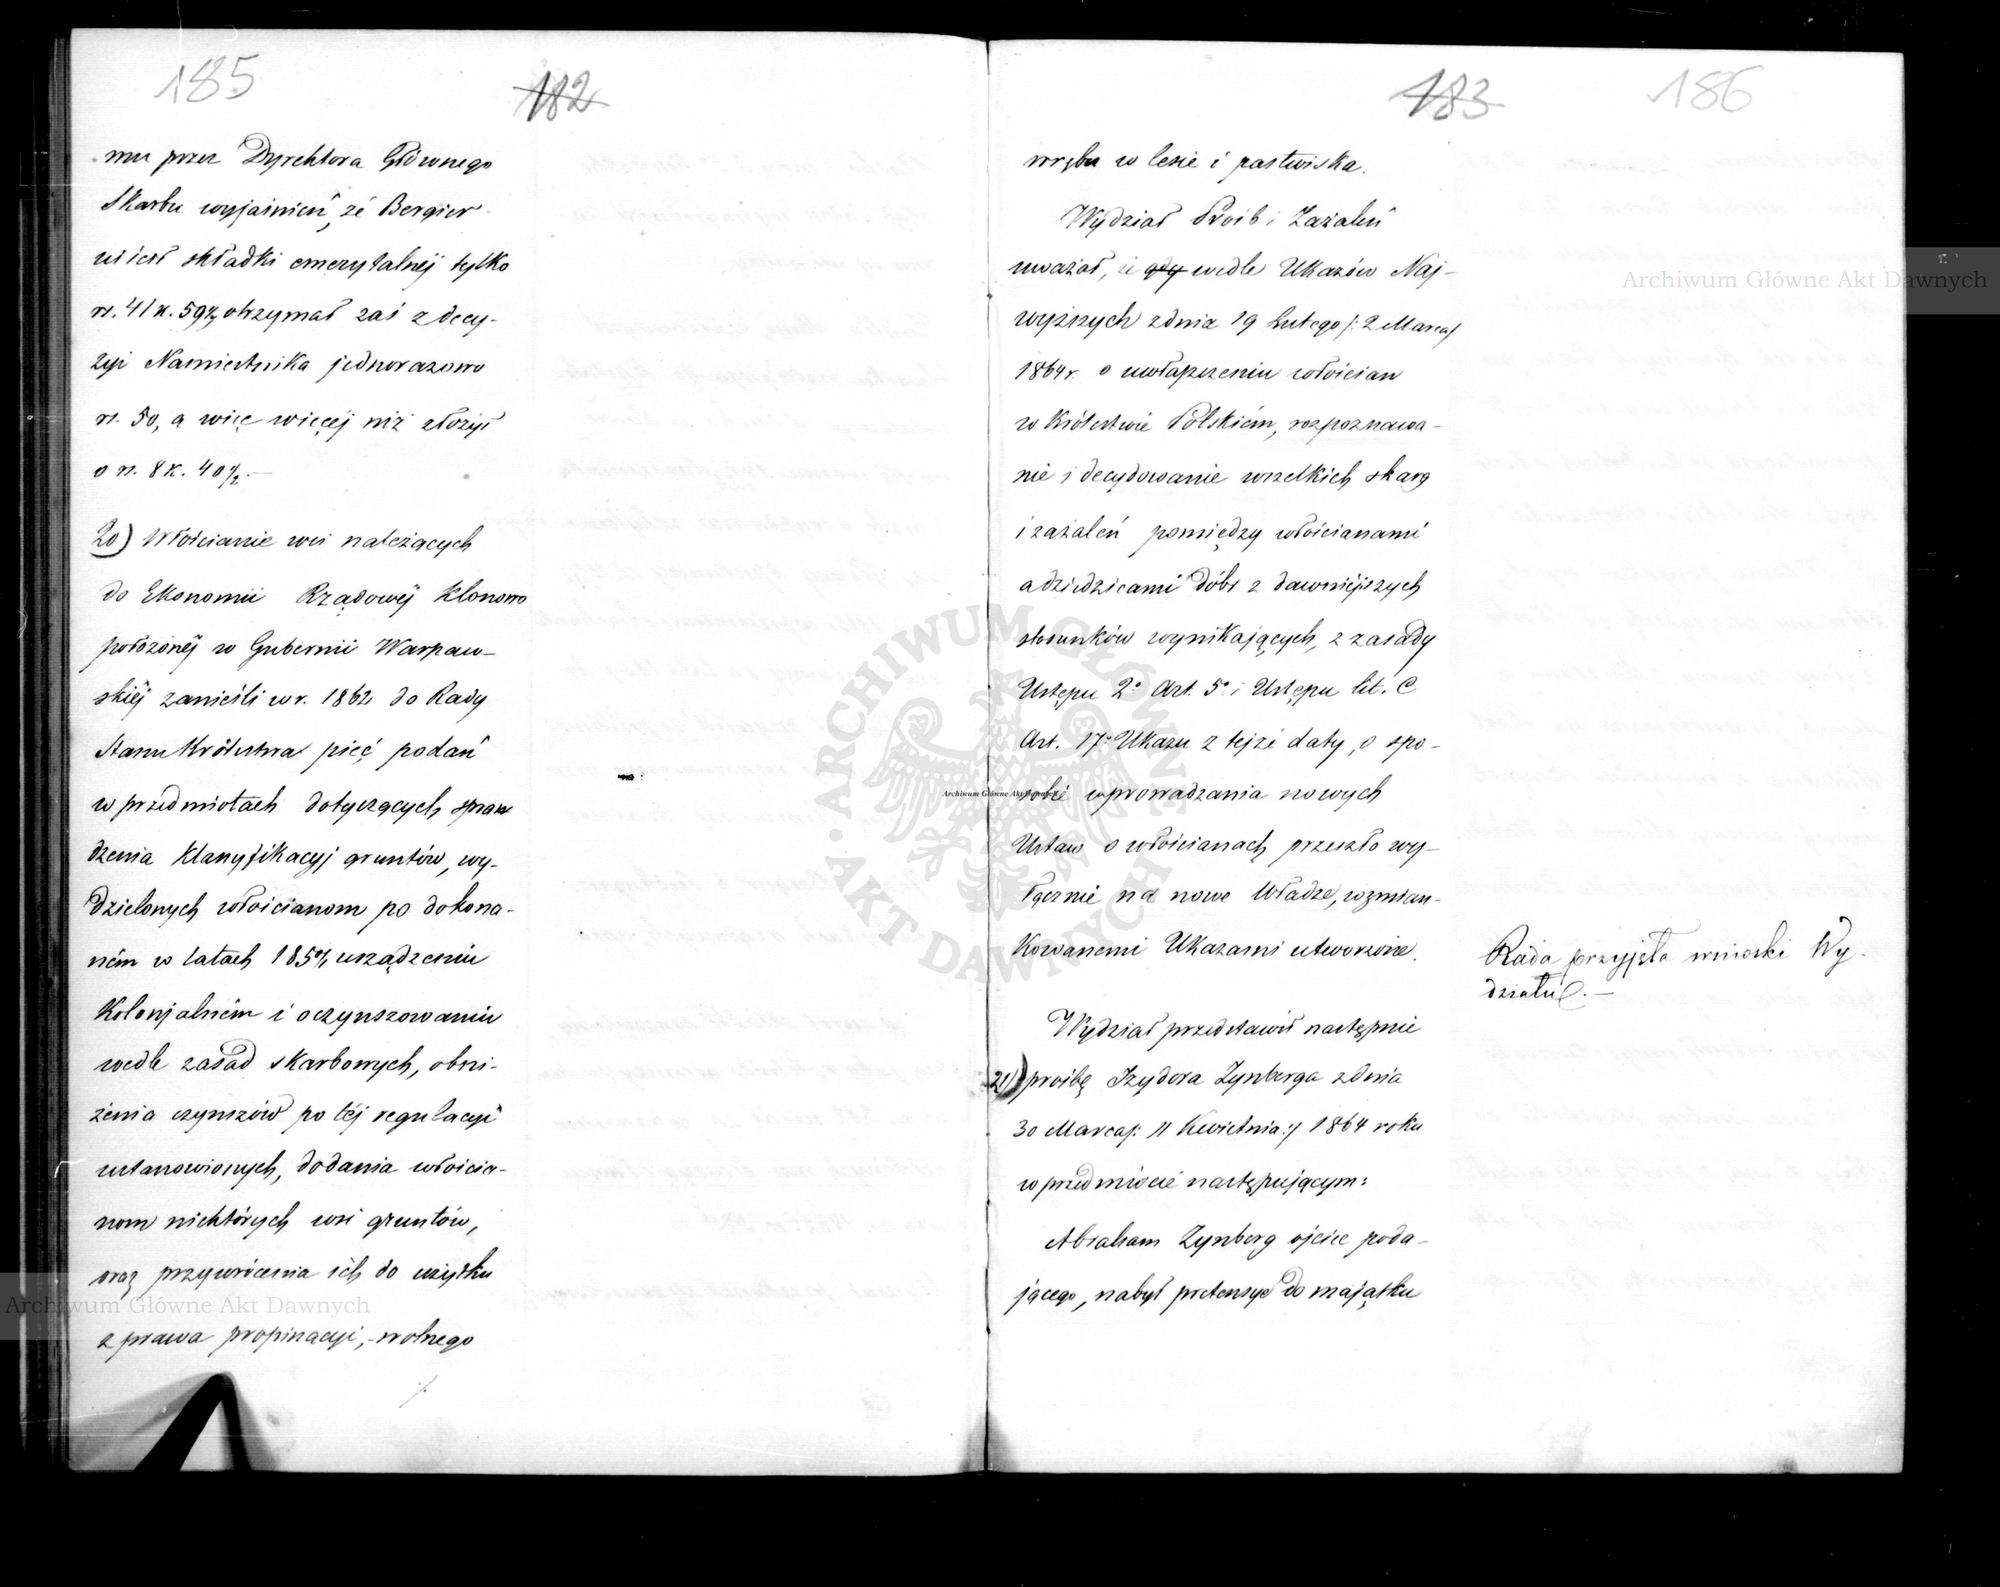 185
182
mu przez Dyrektora Głównego
Skarbu wyjaśnień, że Bergier
uiścił składki emerytalnéj tylko
rs. 41 k. 59½, otrzymał zaś z decy-
zyi Namiestnika jednorazowo
rs. 50, a więc więcéj niż złożył
o rs. 8 k. 40½.—
20) Włościanie wsi należących
do Ekonomii Rządowéj Klonowo
położonéj w Gubernii Warszaw-
skiéj zanieśli w r. 1862 do Rady
Stanu Królestwa pięć podań
w przedmiotach dotyczących spraw
dzenia klassyfikacyj gruntów, wy-
dzielonych włościanom po dokona-
ném w latach urządzeniu
Kolonjalném i oczynszowaniu
wedle zasad skarbowych, obni-
żenia czynszów po téj regulacyi
ustanowionych, dodania włościa-
nom niektórych wsi gruntów,
oraz przywrócenia ich do użytku
z prawa propinacyi, wolnego
183
186
wrębu w lesie i pastwiska.
Wydział Próśb i Zażaleń
uważał, że gdy wedle Ukazów Naj-
wyższych z dnia 19 Lutego /: 2 Marca/
1864 r. o uwłaszczeniu włościan
w Królestwie Polskiém, rozpoznawa-
nie i decydowanie wszelkich skarg
i zażaleń pomiędzy włościanami
a dziedzicami dóbr z dawniéjszych
stosunków wynikających, z zasady
Ustępu 2º Art. 5º i Ustępu lit. C
Art. 17º Ukazu z tejże daty, o spo-
sobie wprowadzania nowych
Ustaw o włościanach przeszło wy-
łącznie na nowe Władze, wzmian-
kowanemi Ukazami utworzone.
Rada przyjęła wnioski Wy-
działu.—
Wydział przedstawił następnie
21) prośbę Izydora Zynberga z dnia
30 Marca /: 11 Kwietnia :/ 1864 roku
w przedmiocie następującym:
Abraham Zynberg ojciec poda-
jącego, nabył pretensye do majątku
Archiwum Główne Akt Dawnych
Archiwum Główne Akt Dawnych
Archiwum Główne Akt Dawnych
ARCHIWUM GŁÓWNE
AKT DAWNYCH